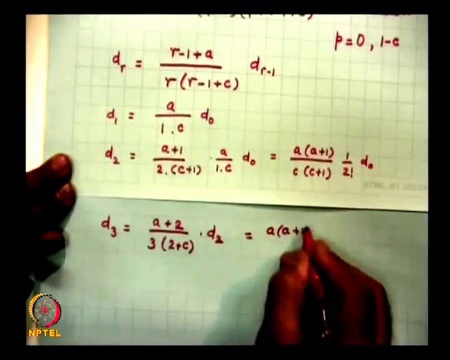 p=0, 1-c
d_r = \frac{r-1+a}{r(r-1+c)} d_{r-1}
d_1 = \frac{a}{1.c} d_0
d_2 = \frac{a+1}{2.(c+1)} . \frac{a}{1.c} d_0 = \frac{a(a+1)}{c(c+1)} \frac{1}{2!} d_0
d_3 = \frac{a+2}{3(2+c)} . d_2 = a(a+1
NPTEL